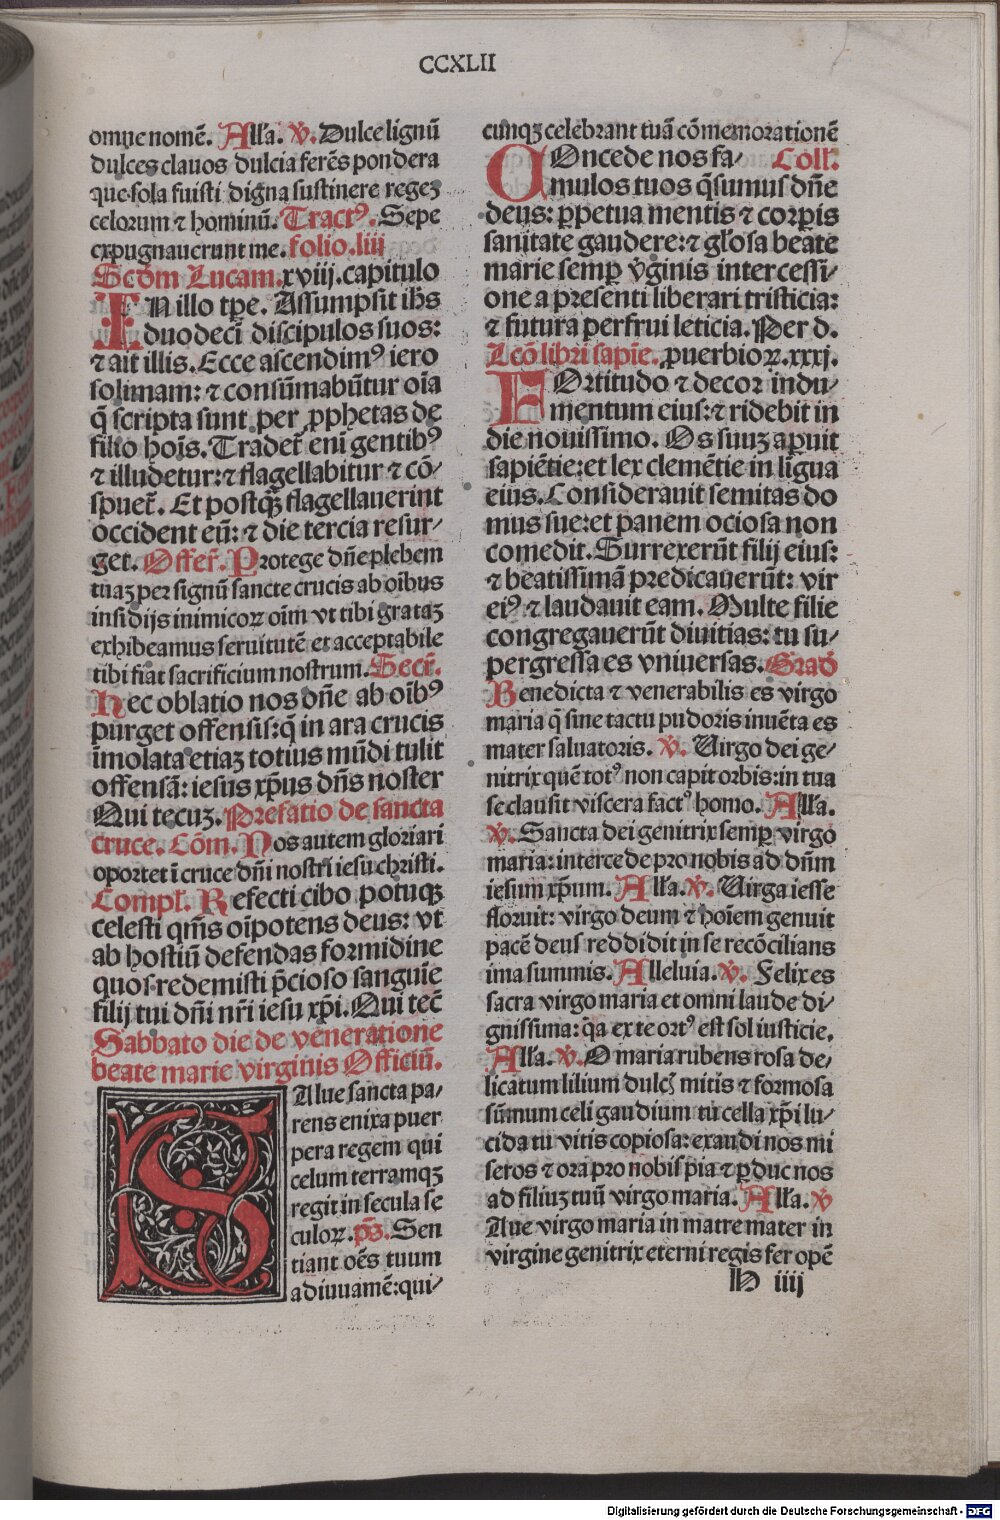 CCXLII
omne nomē. Alľa. ℣. Dulce lignū
dulces clauos dulcia ferēs pondera
que sola fuisti digna sustinere regeꝫ
celorum ⁊ hominū. Tractꝰ. Sepe
expugnauerunt me. folio.liii
Scd̄m Lucam.xviij.capitulo
IN illo tp̄e. Assumpsit ih̄s
duodecī discipulos suos:
⁊ ait illis. Ecce ascendimꝰ iero
solimam: ⁊ consūmabūtur oīa
q̄ scripta sunt per ꝓphetas de
filio hoīs. Tradet᷑ enī gentibꝰ
⁊ illudetur: ⁊ flagellabitur ⁊ cō/
spuet᷑. Et postqꝫ̄ flagellauerint
occident eū: ⁊ die tercia resur/
get. Offer᷑. Protege dn̄e plebem
tuaꝫ per signū sancte crucis ab oībus
insidijs inimicoꝝ oīm vt tibi grataꝫ
exhibeamus seruitutē et acceptabile
tibi fiat sacrificium nostrum. Secr᷑.
Hec oblatio nos dn̄e ab oībꝰ
purget offensis: q̄ in ara crucis
īmolata etiaꝫ totius mūdi tulit
offensā: iesus xp̄us dn̄s noster
Qui tecuꝫ. Prefatio de sancta
cruce. Cōm. Nos autem gloriari
oportet ī cruce dn̄i nostri iesu christi.
Compľ. Refecti cibo potuqꝫ
celesti qm̄s oīpotens deus: vt
ab hostiū defendas formidine
quos redemisti p̄cioso sanguīe
filij tui dn̄i nr̄i iesu xp̄i. Qui tec̄
Sabbato die de veneratione
beate marie virginis Officiū.
SAlue sancta pa/
rens enixa puer
pera regem qui
celum terramqꝫ
regit in secula se
culoꝝ. ps̄. Sen
tiant oēs tuum
adiuuamē: qui/
cunqꝫ celebrant tuā cōmemorationē
COncede nos fa/ Coll.
mulos tuos q̄sumus dn̄e
deus: ꝑpetua mentis ⁊ corꝑis
sanitate gaudere: ⁊ gľosa beate
marie semꝑ v̓ginis intercessi/
one a presenti liberari tristicia:
⁊ futura perfrui leticia. Per d.
Lcō libri sapīe. ꝓuerbioꝝ.xxxj.
FOrtitudo ⁊ decor indu/
mentum eius: ⁊ ridebit in
die nouissimo. Os suuꝫ aꝑuit
sapiētie: et lex clemētie in līgua
eius. Considerauit semitas do
mus sue: et panem ociosa non
comedit. Surrexerūt filij eius:
⁊ beatissimā predicauerūt: vir
eiꝰ ⁊ laudauit eam. Multe filie
congregauerūt diuitias: tu su/
pergressa es vniuersas. Grad̄
Benedicta ⁊ venerabilis es virgo
maria q̄ sine tactu pudoris inuēta es
mater saluatoris. ℣. Virgo dei ge/
nitrix quē totꝰ non capit orbis: in tua
se clausit viscera factꝰ homo. Alľa.
℣. Sancta dei genitrix semꝑ virgo
maria: intercede pro nobis ad dn̄m
iesum xp̄um. Alľa. ℣. Virga iesse
floruit: virgo deum ⁊ hoīem genuit
pacē deus reddidit in se recōcilians
ima summis. Alleluia. ℣. Felix es
sacra virgo maria et omni laude di/
gnissima: q̄a ex te ortꝰ est sol iusticie.
Alľa. ℣. O maria rubens rosa de/
licatum lilium dulcꝭ mitis ⁊ formosa
sūmum celi gaudium tu cella xp̄i lu/
cida tu vitis copiosa: exaudi nos mi
seros ⁊ ora pro nobis pia ⁊ ꝑduc nos
ad filiuꝫ tuū virgo maria. Alľa. ℣
Aue virgo maria in matre mater in
virgine genitrix eterni regis fer opē
H iiij
Digitalisierung gefördert durch die Deutsche Forschungsgemeinschaft - DFG